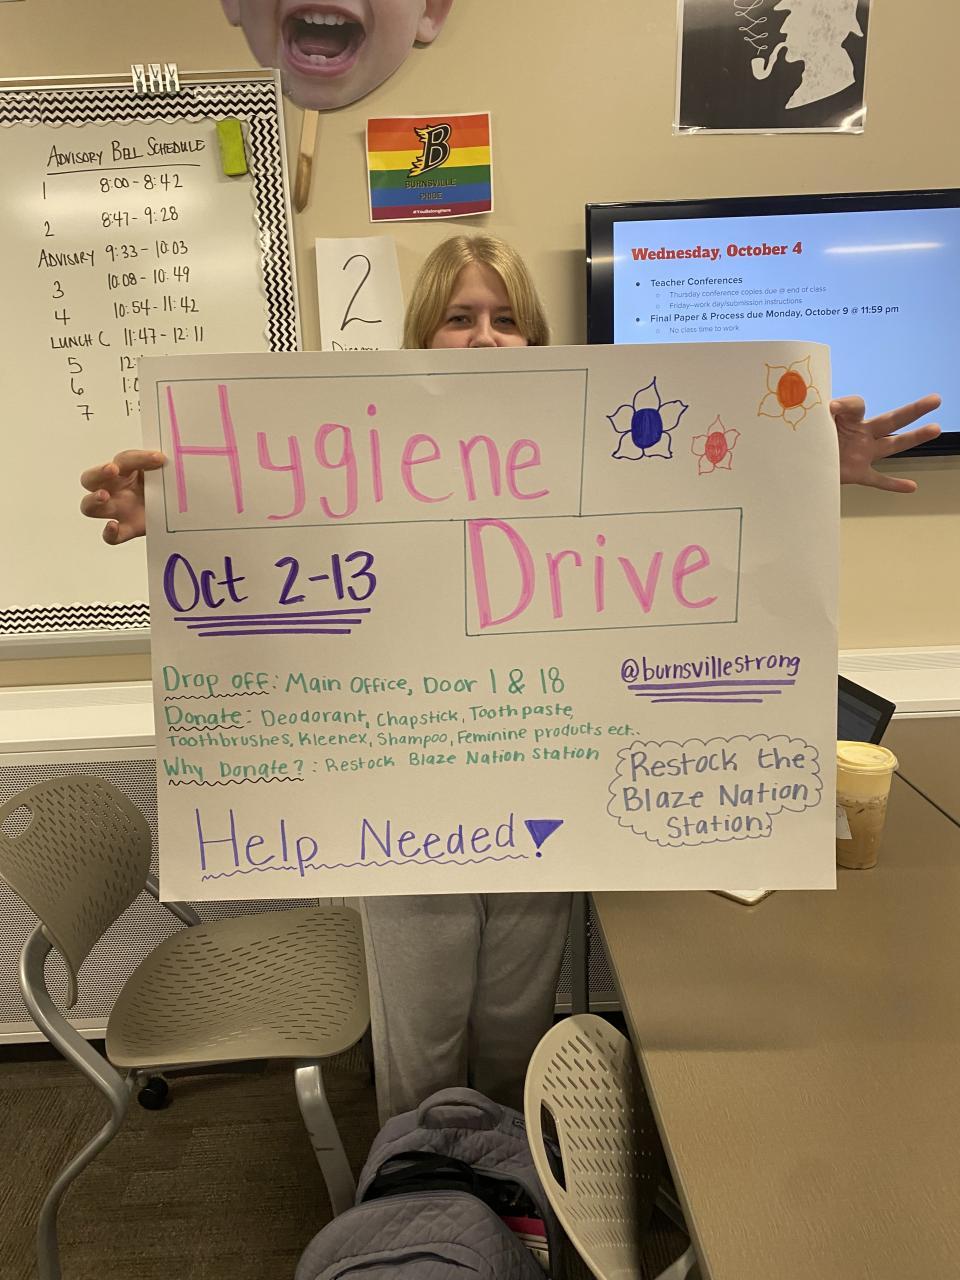 ADVISORY BELL SCHEDULE
1 8:00 - 8:42
2 8:47 - 9:28
ADVISORY 9:33 - 10:03
3 10:08 - 10:49
4 10:54 - 11:42
LUNCH C 11:47 - 12:11
5 12:
6 1:0
7 1:
B
BURNSVILLE
PRIDE
#YouBelongHere
2
Wednesday, October 4
• Teacher Conferences
○ Thursday conference copies due @ end of class
○ Friday--work day/submission instructions
• Final Paper & Process due Monday, October 9 @ 11:59 pm
○ No class time to work
Hygiene
Drive
Oct 2-13
Drop off: Main Office, Door 1 & 18
Donate: Deodorant, Chapstick, Toothpaste,
Toothbrushes, Kleenex, Shampoo, Feminine products ect..
Why Donate? : Restock Blaze Nation Station
@burnsvillestrong
Restock the
Blaze Nation
Station
Help Needed!